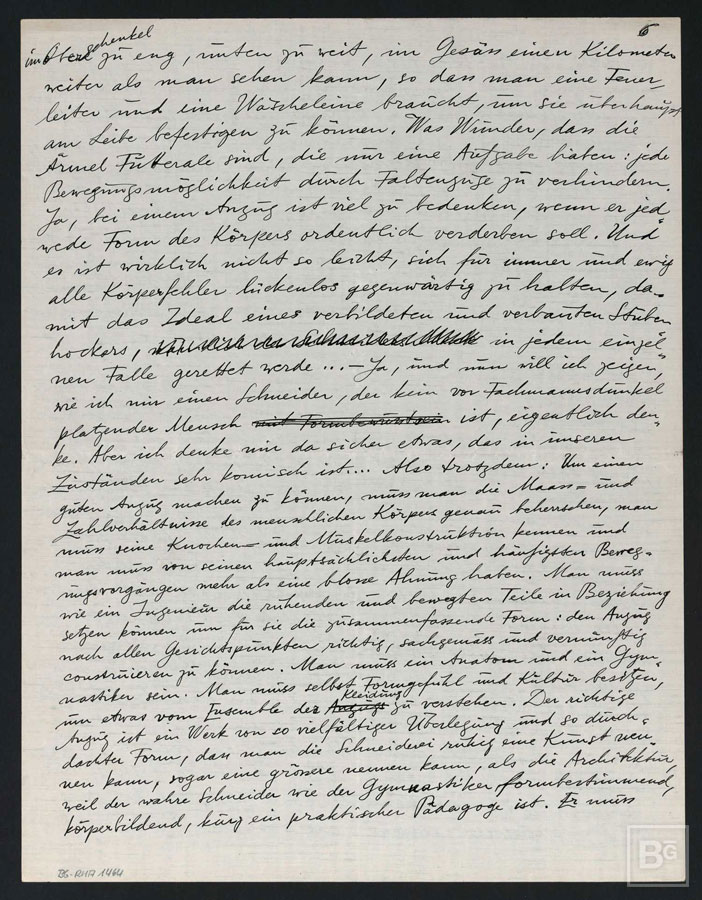 6
im Oberschenkel zu eng, unten zu weit, im Gesäss einen Kilometer
weiter als man sehen kann, so dass man eine Feuer-
leiter und eine Wäscheleine braucht, um sie überhaupt
am Leibe befestigen zu können. Was Wunder, dass die
Ärmel Futterale sind, die nur eine Aufgabe haben: jede
Bewegungsmöglichkeit durch Faltenzüge zu verhindern.
Ja, bei einem Anzug ist viel zu bedenken, wenn er jed-
wede Form des Körpers ordentlich verderben soll. Und
es ist wirklich nicht so leicht, sich für immer und ewig
alle Körperfehler lückenlos gegenwärtig zu halten, da-
mit das Ideal eines verbildeten und verbauten Stuben-
hockers, in jedem einzel-
nen Falle gerettet werde ... – Ja, und nun will ich zeigen,
wie ich mir einen Schneider, der kein vor Fachmannsdünkel
platzender Mensch mit Formbewusstsein ist, eigentlich den-
ke. Aber ich denke mir da sicher etwas, das in unseren
Zuständen sehr komisch ist ... Also trotzdem: Um einen
guten Anzug machen zu können, muss man die Maass- und
Zahlverhältnisse des menschlichen Körpers genau beherrschen, man
muss seine Knochen- und Muskelkonstruktion kennen und
man muss von seinen hauptsächlichsten und häufigsten Beweg-
ungsvorgängen mehr als eine blosse Ahnung haben. Man muss
wie ein Ingenieur die ruhenden und bewegten Teile in Beziehung
setzen können um für sie die zusammenfassende Form: den Anzug
nach allen Gesichtspunkten richtig, sachgemäss und vernünftig
construieren zu können. Man muss ein Anatom und ein Gym-
nastiker sein. Man muss selbst Formgefühl und Kultur besitzen,
um etwas vom Ensemble der Anzugs Kleidung zu verstehen. Der richtige
Anzug ist ein Werk von so vielfältiger Überlegung und so durch-
dachter Form, dass man die Schneiderei ruhig eine Kunst nen-
nen kann, sogar eine grössere nennen kann, als die Architektur,
weil der wahre Schneider wie der Gymnastiker formbestimmend,
körperbildend, kurz ein praktischer Pädagoge ist. Er muss
BG-RHA 1464
BG